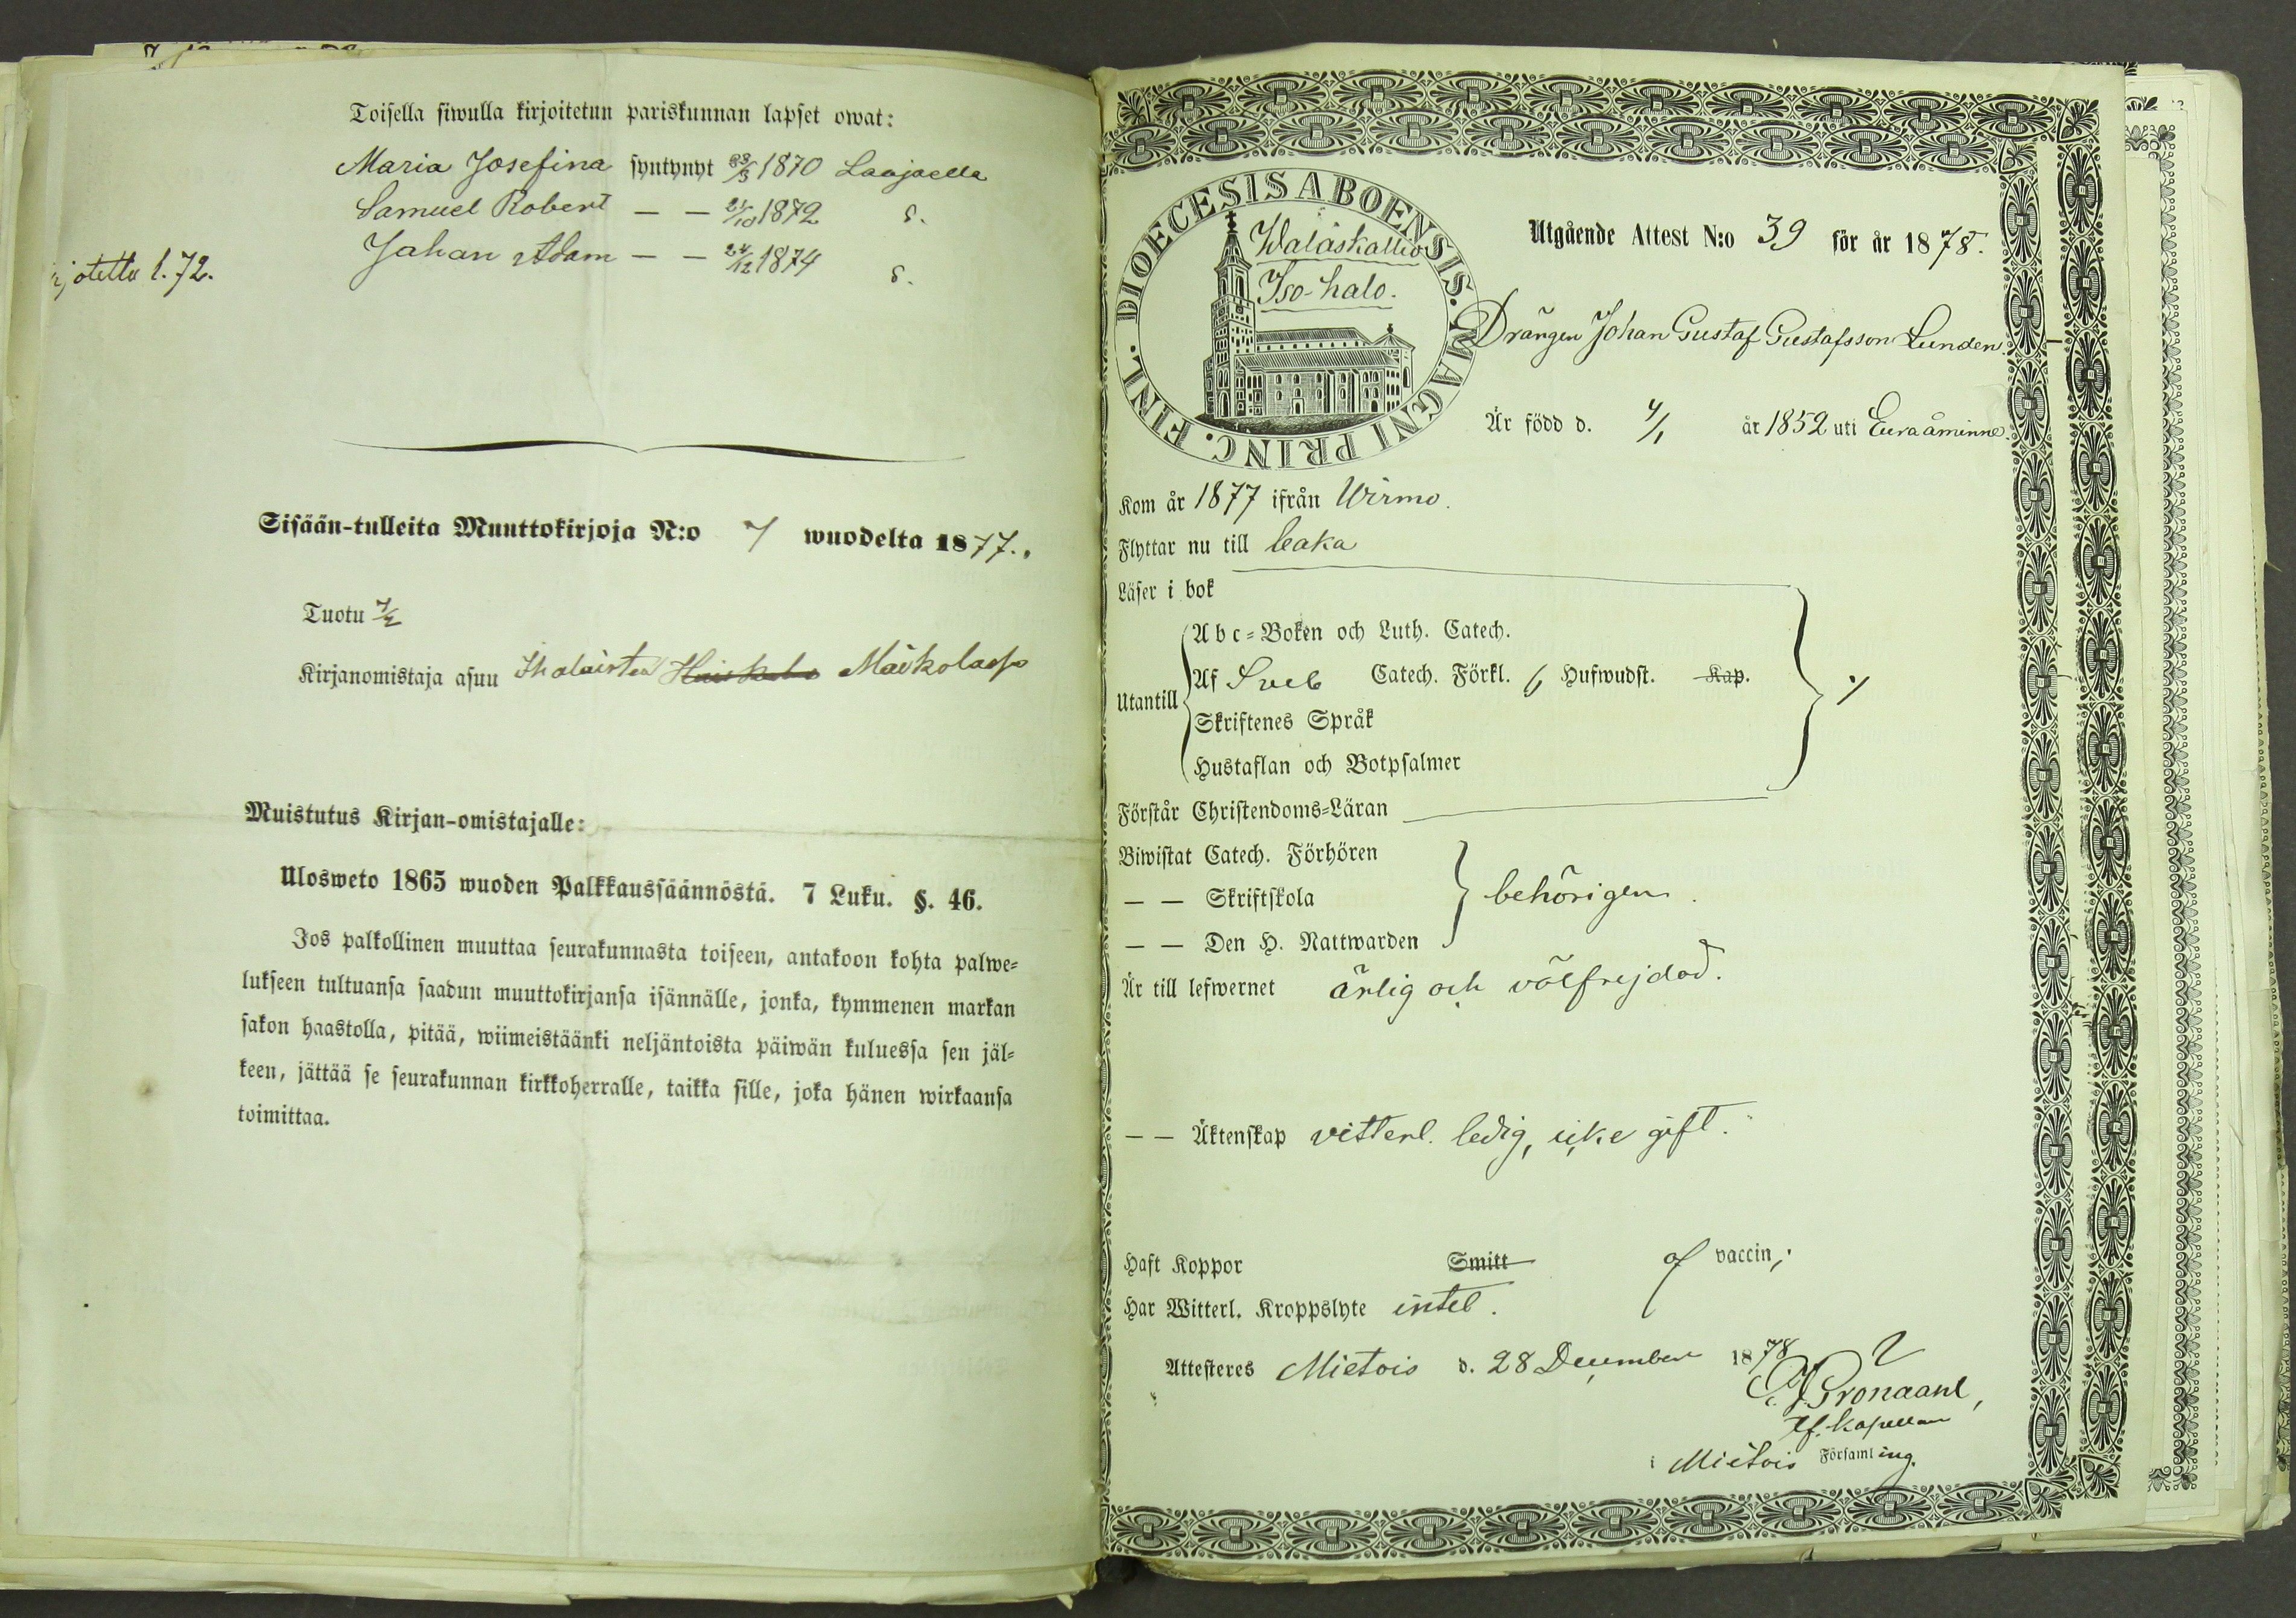 Toisella siwulla kirjoitetun pariskunnan lapset owat:
Maria Josefina syntynyt 23/3 1870 Laajoella
Samuel Robert — — 21/10 1872 s.
Johan Adam — — 24/12 1874 s.
jotettu l. 72.
Sisään-tulleita Muuttokirjoja N:o 7 wuodelta 1877.
Tuotu
Kirjanomistaja asuu Ihalaisten Maikolasso
Muistutus Kirjan-omistajalle:
Ulosweto 1865 wuoden Palkkaussäännöstä. 7 Luku. §. 46.
Jos palkollinen muuttaa seurakunnasta toiseen, antakoon kohta palwe-
lukseen tultuansa saadun muuttokirjansa isännälle, jonka, kymmenen markan
sakon haastolla, pitää, wiimeistäänki neljäntoista päiwän kuluessa sen jäl-
keen, jättää se seurakunnan kirkkoherralle, taikka sille, joka hänen wirkaansa
toimittaa.
DIOECESIS ABOENSIS. MAGNI PRINC. FINL.
Walaskallio
Iso-halo.
Utgående Attest N:o 39 för år 1878.
Drängen Johan Gustaf Gustafsson Lunden.
Är född d. 4/1 år 1852 uti Euraåminne.
Kom år 1877 ifrån Wirmo.
Flyttar nu till
Läser i bok
Abc-Boken och Luth. Catech.
Utantill Af Sveb Catech. Förkl. 6 Hufwudst. Kap.
Skriftenes Språk
Hustaflan och Botpsalmer
Förstår Christendoms-Läran
Biwistat Catech. Förhören
— — Skriftskola behörigen.
— — Den H. Nattwarden
Är till lefwernet ärlig och välfrejdad.
— — Äktenskap vitterl. ledig, icke gift.
Haft Koppor Smitt af vaccin,
Har Witterl. Kroppslyte intet.
Attesteres Mietois d. 28 December 1878
Gronaant,
Kapellan
i Mietois Församling.